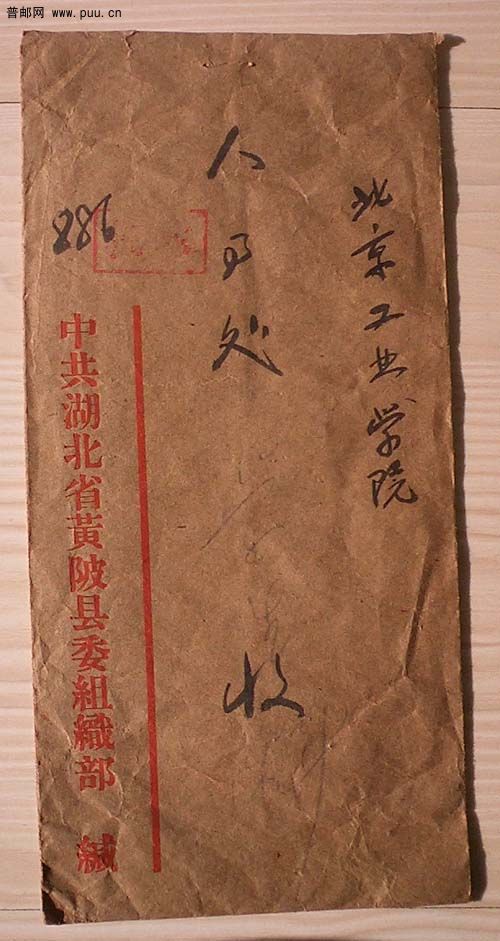 普邮网 www.puu.cn
北京工业学院
人事处 收
886
中共湖北省黃陂县委組織部 緘